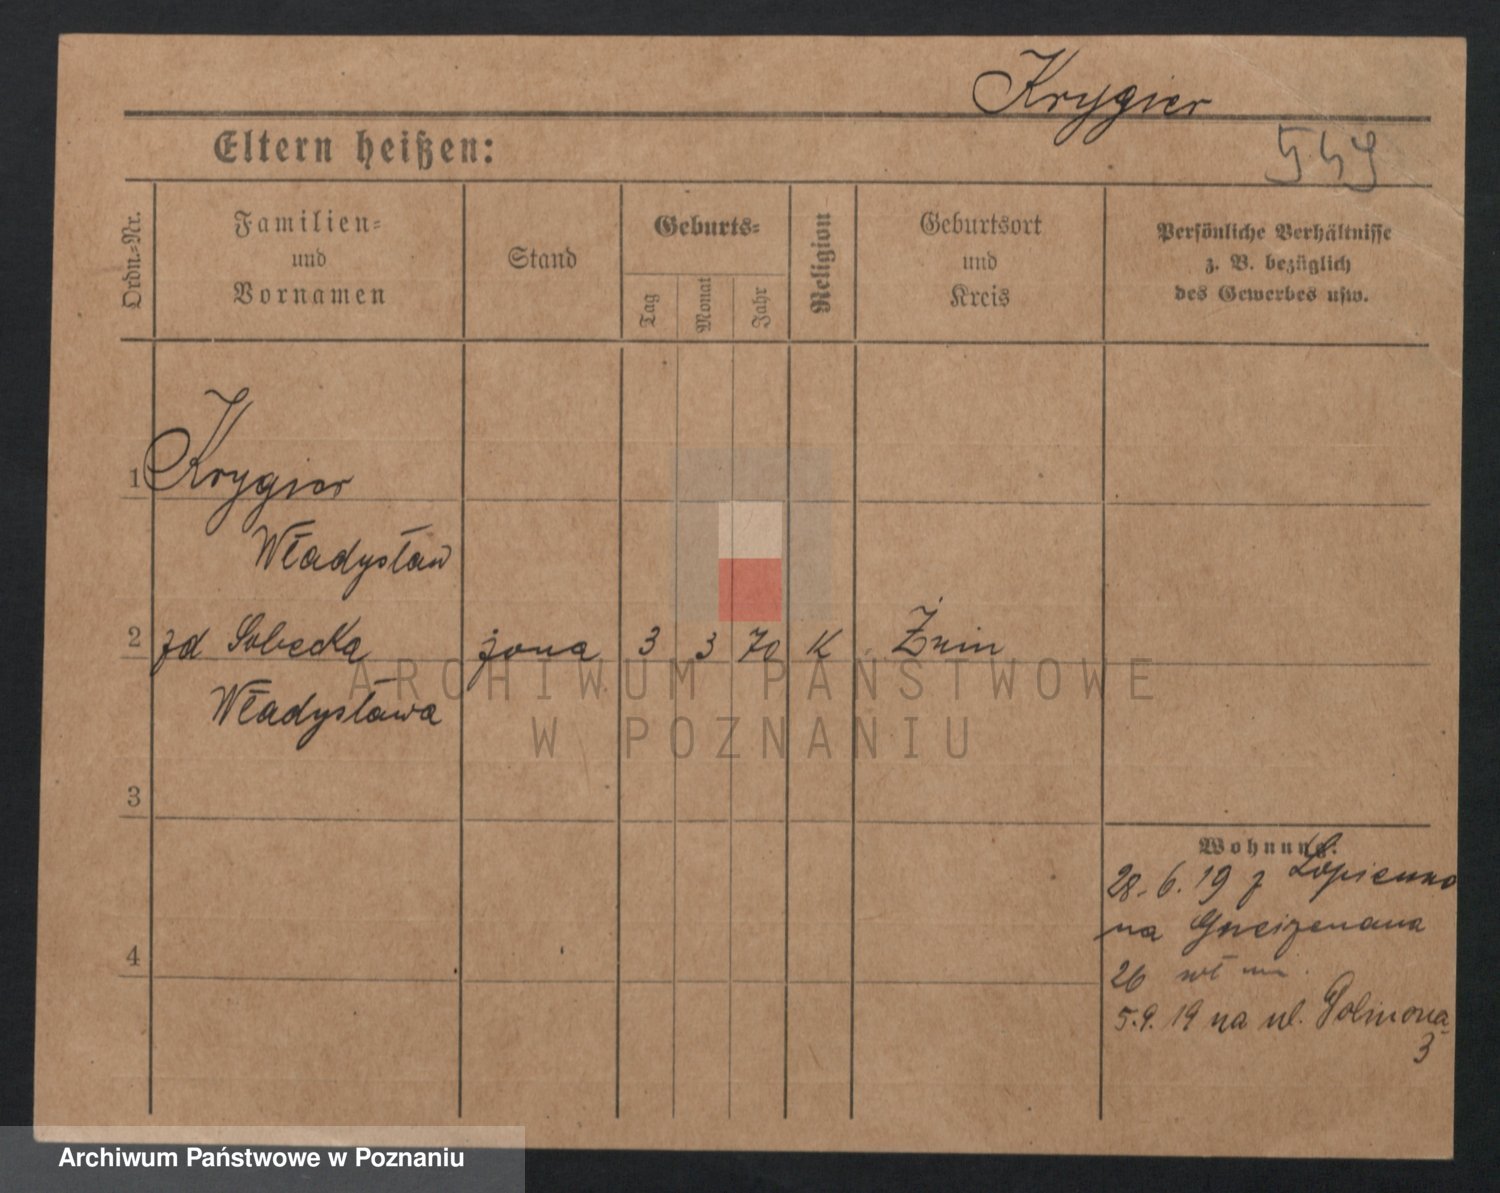 Krygier
Eltern heißen:
549
Ordn.-Nr.
Familien-
und
Vornamen
Stand
Geburts-
Tag
Monat
Jahr
Religion
Geburtsort
und
Kreis
Persönliche Verhältnisse
z. B. bezüglich
des Gewerbes usw.
1 Krygier
Władysław
2 zd Sobecka żona 3 3 70 K Żnin
Władysława
3
4
Wohnung:
28.6.19 z Łopienno
na Gneizenaua
26
5.9.19 na ul. Polmona
3
ARCHIWUM PAŃSTWOWE
W POZNANIU
Archiwum Państwowe w Poznaniu